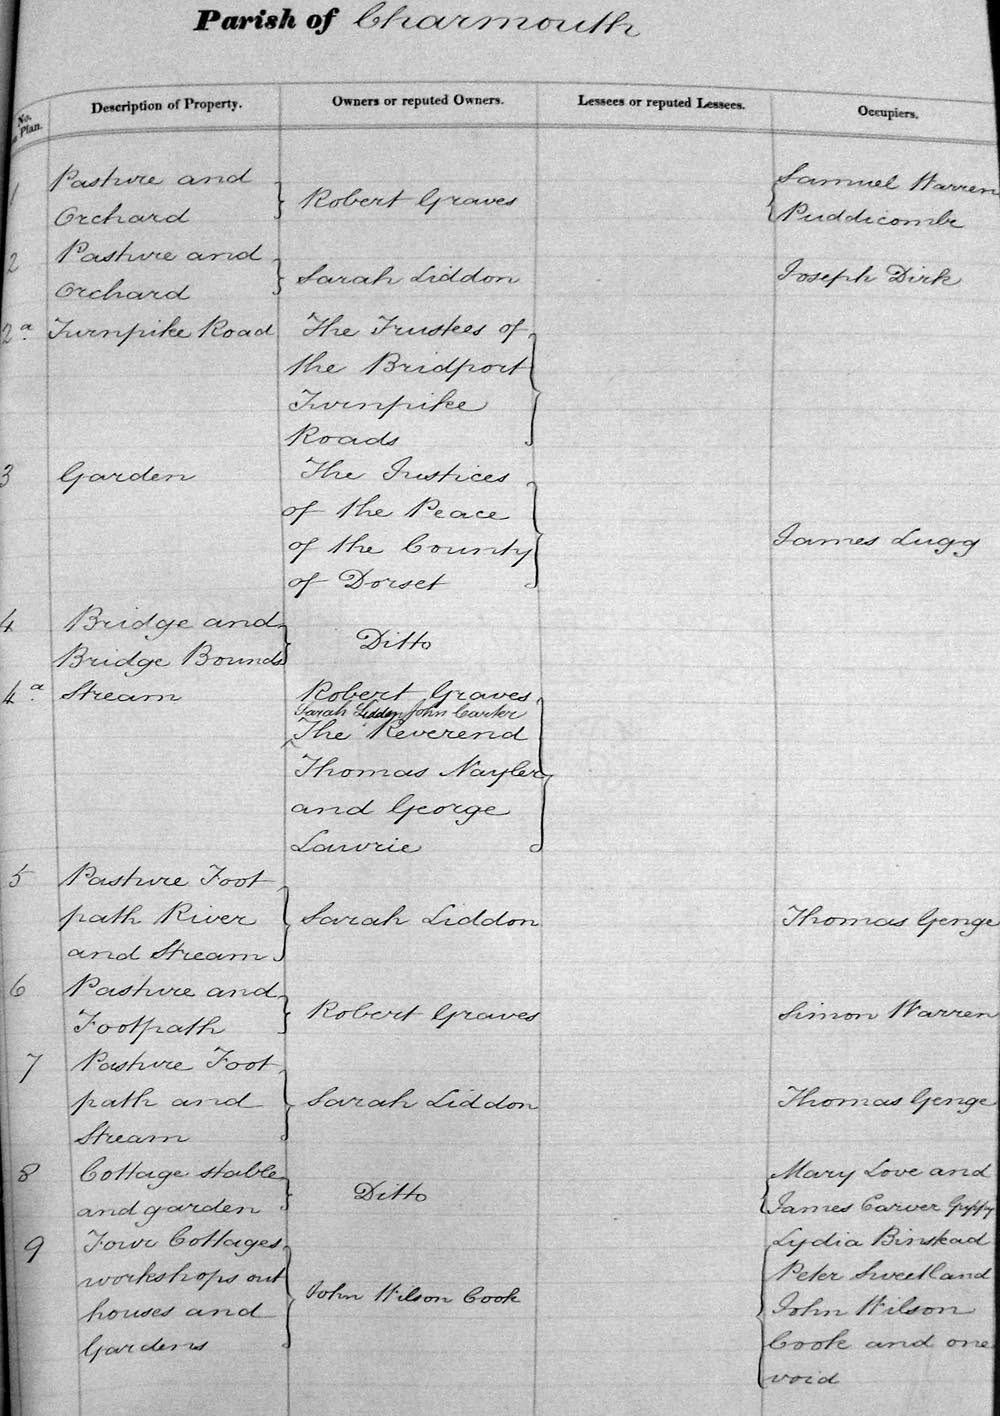 Parish of Charmouth
No. Plan. Description of Property. Owners or reputed Owners. Lessees or reputed Lessees. Occupiers.
1 Pasture and Samuel Warren
Orchard Robert Graves Puddicombe
2 Pasture and
Orchard Sarah Liddon Joseph Dirk
2a. Turnpike Road The Trustees of
the Bridport
Turnpike
Roads
3 Garden The Justices
of the Peace
of the County James Lugg
of Dorset
4 Bridge and
Bridge Bounds Ditto
4a. Stream Robert Graves
Sarah Liddon John Carter
The Reverend
Thomas Nayler
and George
Lawrie
5 Pasture Foot
path River Sarah Liddon Thomas Genge
and Stream
6 Pasture and
Footpath Robert Graves Simon Warren
7 Pasture Foot
path and Sarah Liddon Thomas Genge
Stream
8 Cottage stable Mary Love and
and garden Ditto James Carver Guppy
9 Four Cottages Lydia Binskad
workshops out Peter Sweetland
houses and John Wilson Cook John Wilson
Gardens Cook and one
void